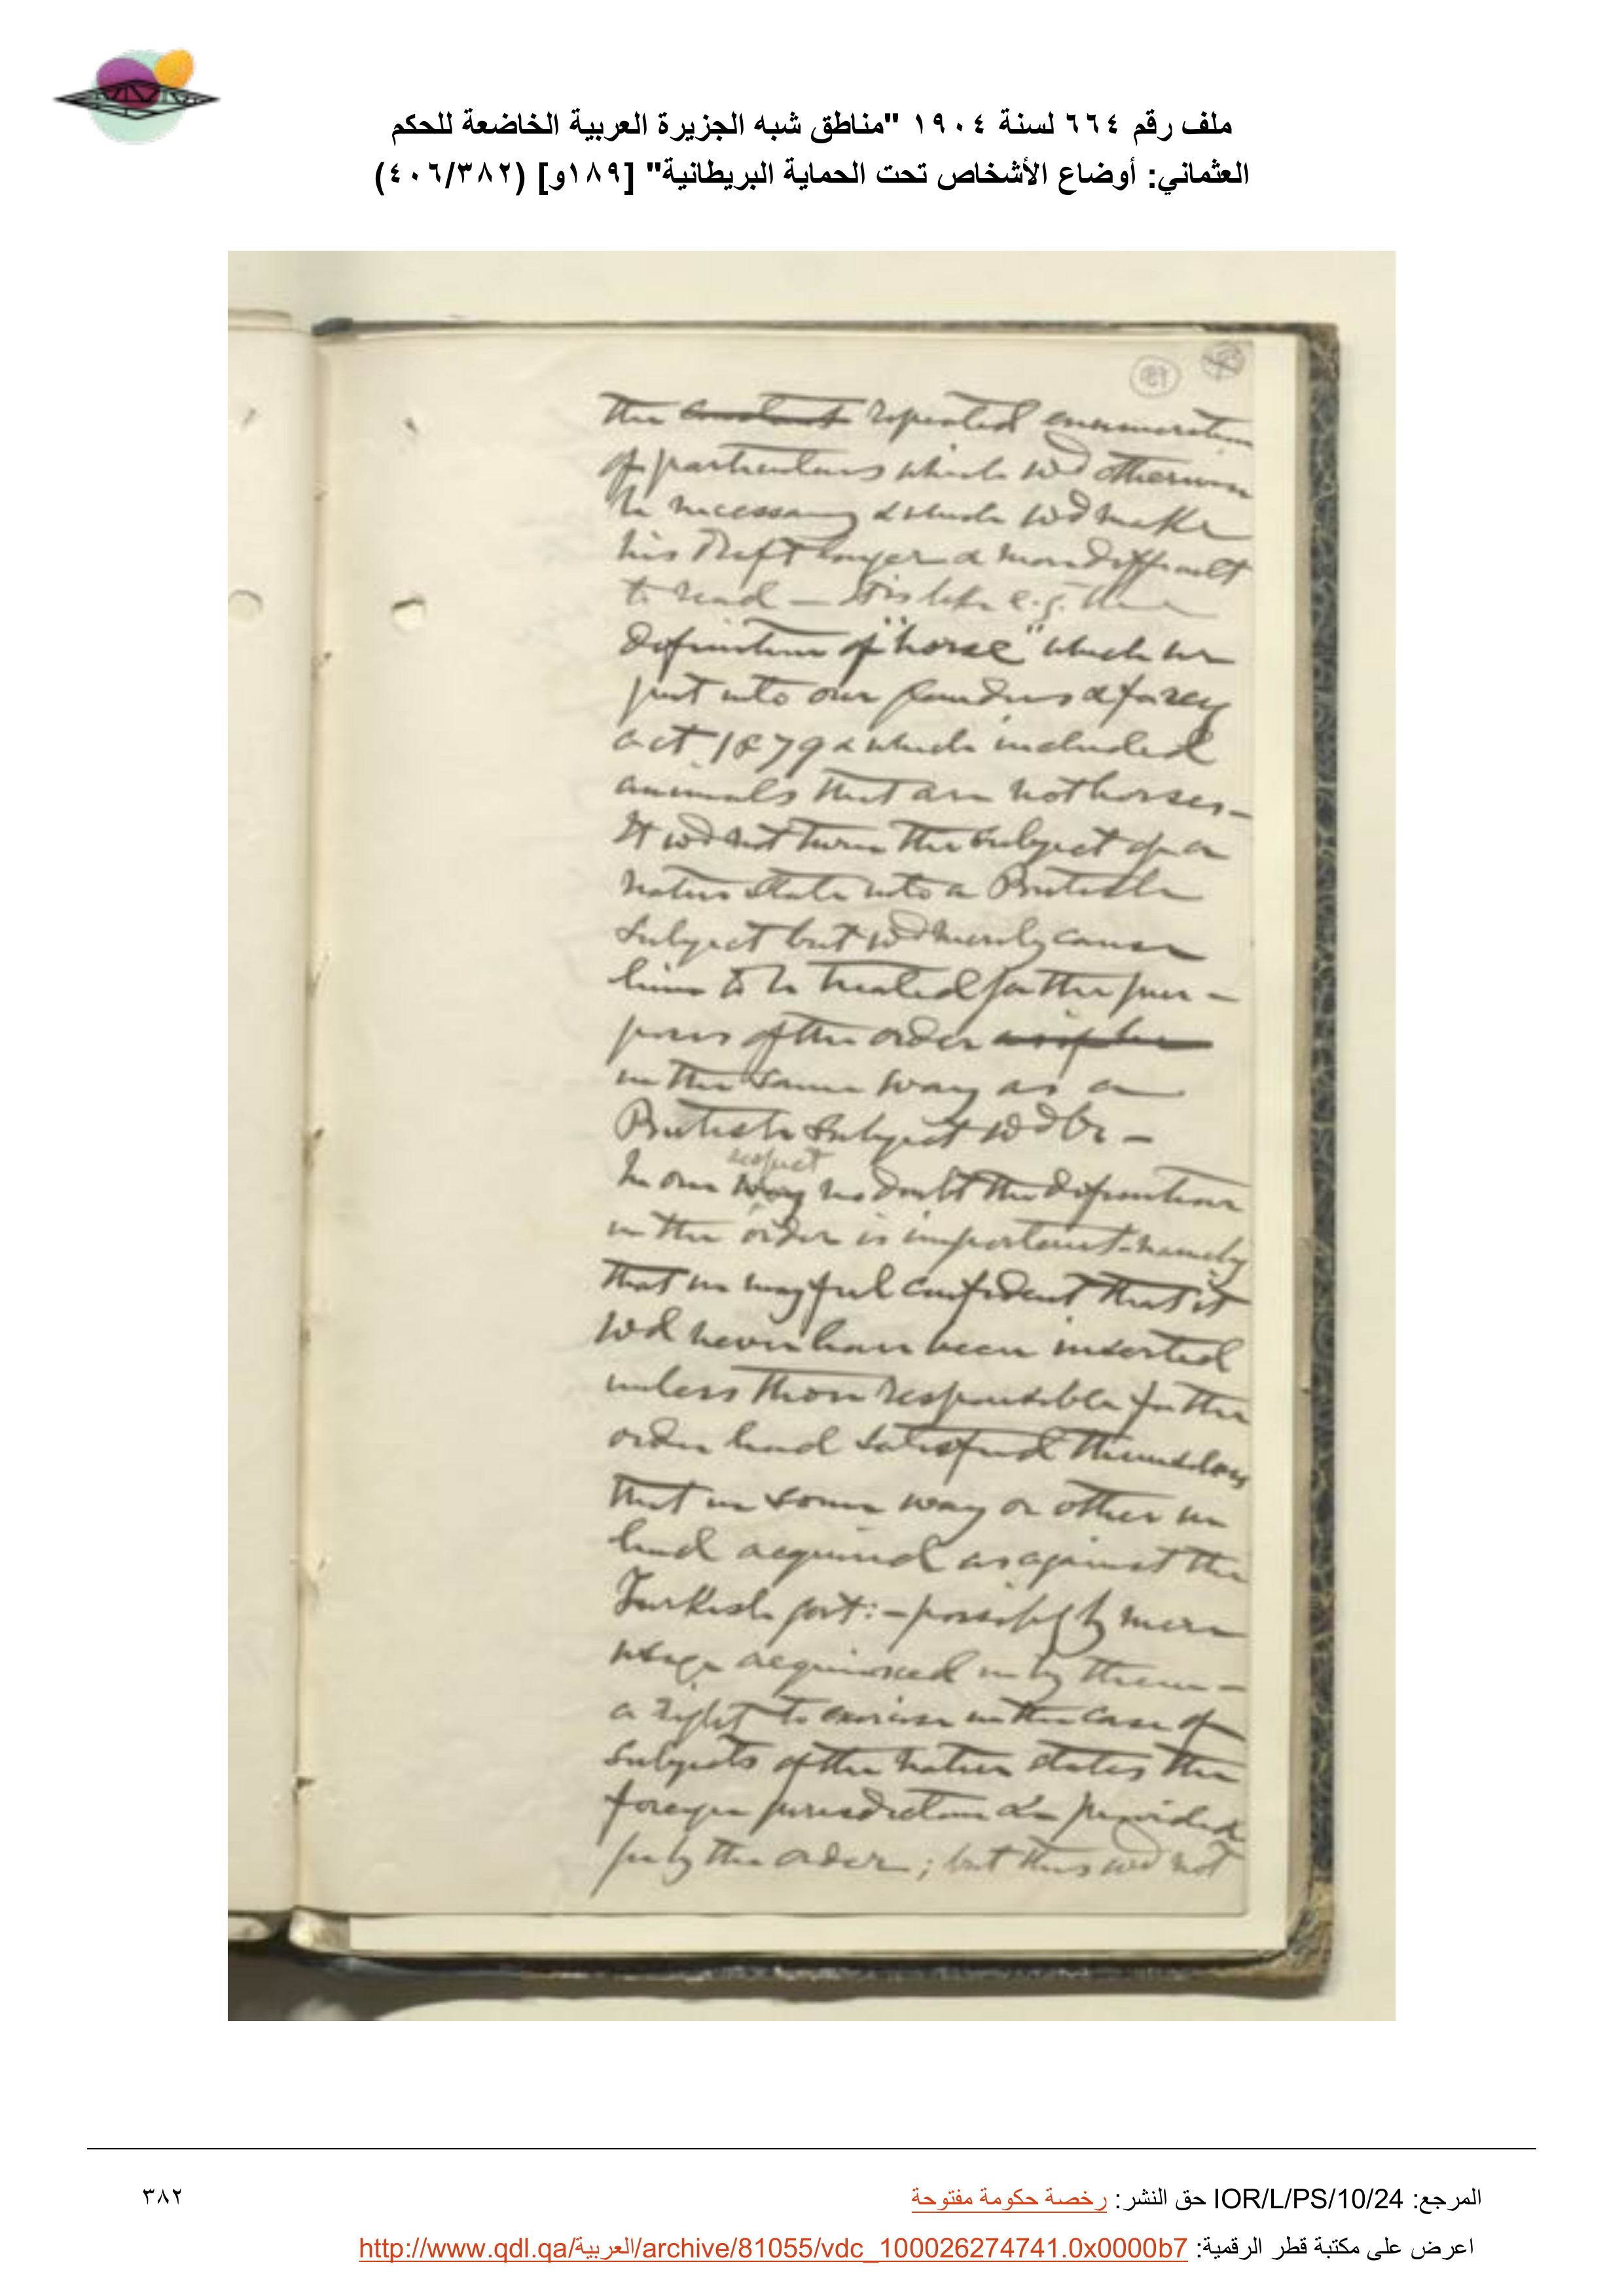 ملف رقم ٦٦٤ لسنة ١٩٠٤ "مناطق شبه الجزيرة العربية الخاضعة للحكم
العثماني: أوضاع الأشخاص تحت الحماية البريطانية" [١٨٩و] (٤٠٦/٣٨٢)
189
the constant repeated enumeration
of particulars which wd otherwise
be necessary & which wd make
his draft longer & more difficult
to read — It is like e.g. the
definition of "horse" which we
put into our & farcy
act 1879 & which included
animals that are not horses –
It wd not turn the subject of a
native state into a British
subject but wd merely cause
him to be treated for the pur-
poses of the order as if he
in the same way as a
British subject wd be –
respect
In one way no doubt the definition
in the order is important – namely
that we may feel confident that it
wd never have been inserted
unless those responsible for the
order had satisfied themselves
that in some way or other we
had acquired as against the
Turkish govt: – possibly by mere
usage acquiesced in by them –
a right to exercise in the case of
subjects of the native states the
foreign jurisdiction &c provided
for by the order; but this wd not
المرجع: IOR/L/PS/10/24 حق النشر: رخصة حكومة مفتوحة
٣٨٢
اعرض على مكتبة قطر الرقمية: http://www.qdl.qa/العربية/archive/81055/vdc_100026274741.0x0000b7